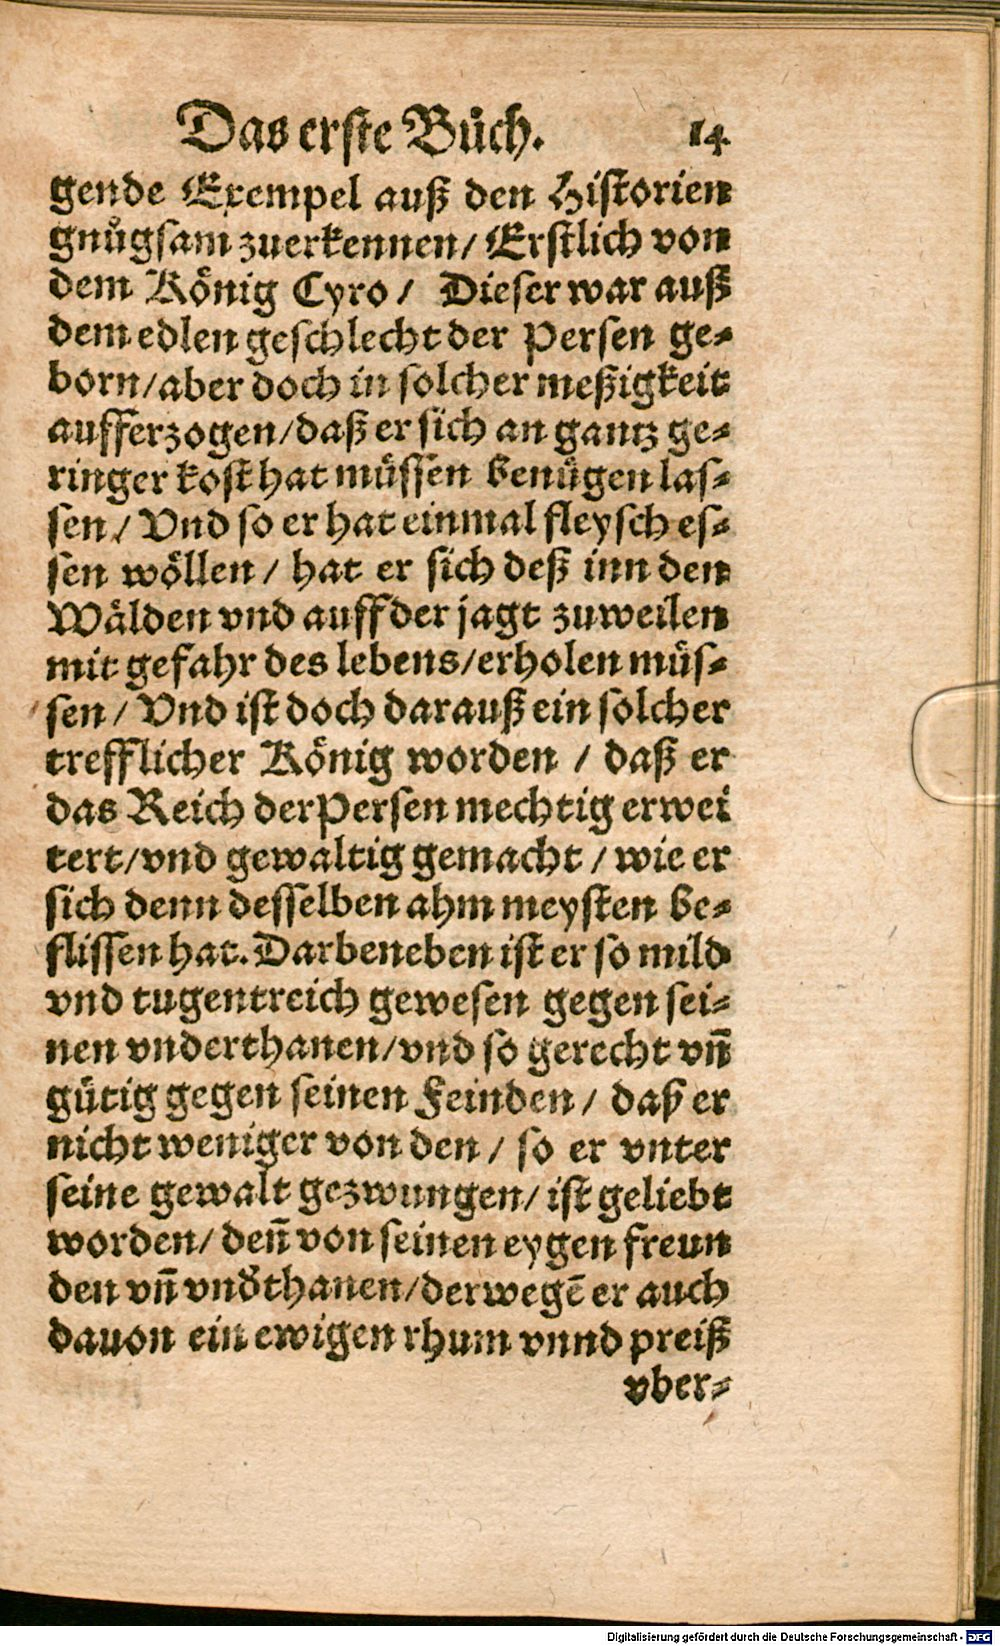 Das erste Bůch. 14.
gende Exempel auß den Historien
gnůgsam zuerkennen/ Erstlich von
dem König Cyro/ Dieser war auß
dem edlen geschlecht der Persen ge-
born/aber doch in solcher meßigkeit
aufferzogen/daß er sich an gantz ge-
ringer kost hat müssen benügen las-
sen/ Vnd so er hat einmal fleysch es-
sen wöllen/ hat er sich deß inn den
Wälden vnd auff der jagt zuweilen
mit gefahr des lebens/erholen müs-
sen/ Vnd ist doch darauß ein solcher
trefflicher König worden / daß er
das Reich der Persen mechtig erwei
tert/vnd gewaltig gemacht / wie er
sich denn desselben ahm meysten be-
flissen hat. Darbeneben ist er so mild
vnd tugentreich gewesen gegen sei-
nen vnderthanen/vnd so gerecht vñ
gütig gegen seinen Feinden/ daß er
nicht weniger von den/ so er vnter
seine gewalt gezwungen/ ist geliebt
worden/ deñ von seinen eygen freun
den vñ vnd̕thanen/derwegē er auch
dauon ein ewigen rhum vnnd preiß
vber-
Digitalisierung gefördert durch die Deutsche Forschungsgemeinschaft - DFG